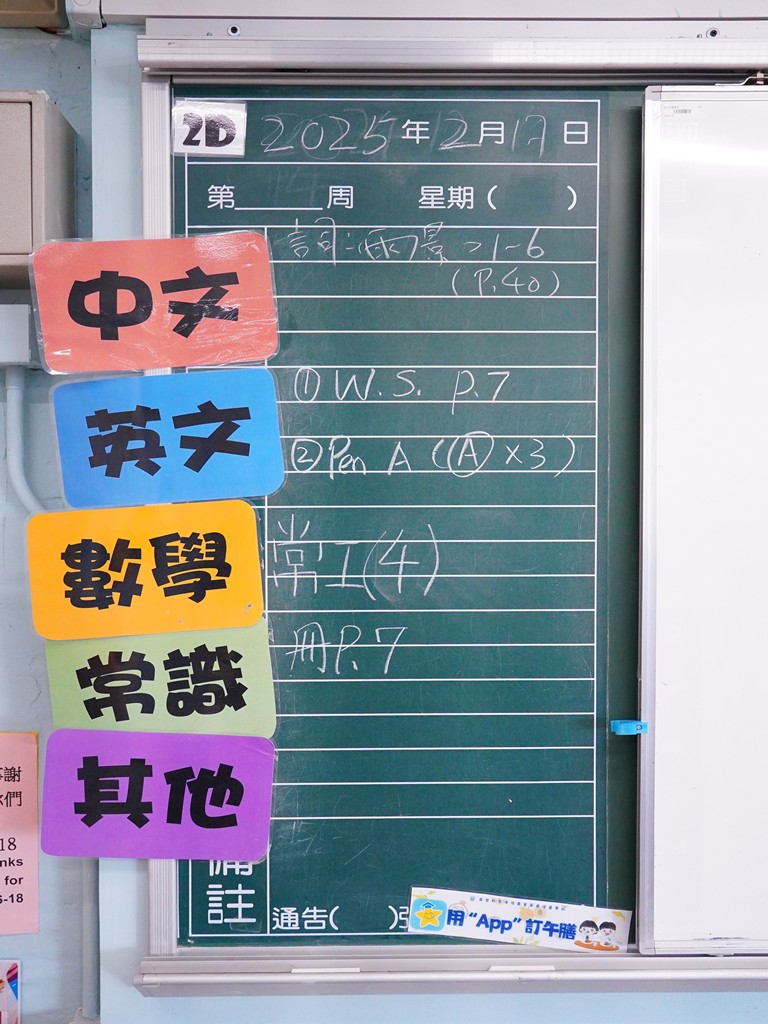 2D 2025年2月17日
第______周 星期( )
中文
詞:雨景 >1-6
(P.40)
英文
① W.S. p.7
② Pen A (Ⓐ x3)
數學
常工(4)
常識
冊P.7
其他
備註
通告( )
用“App”訂午膳
謝
們
18
nks
for
6-18